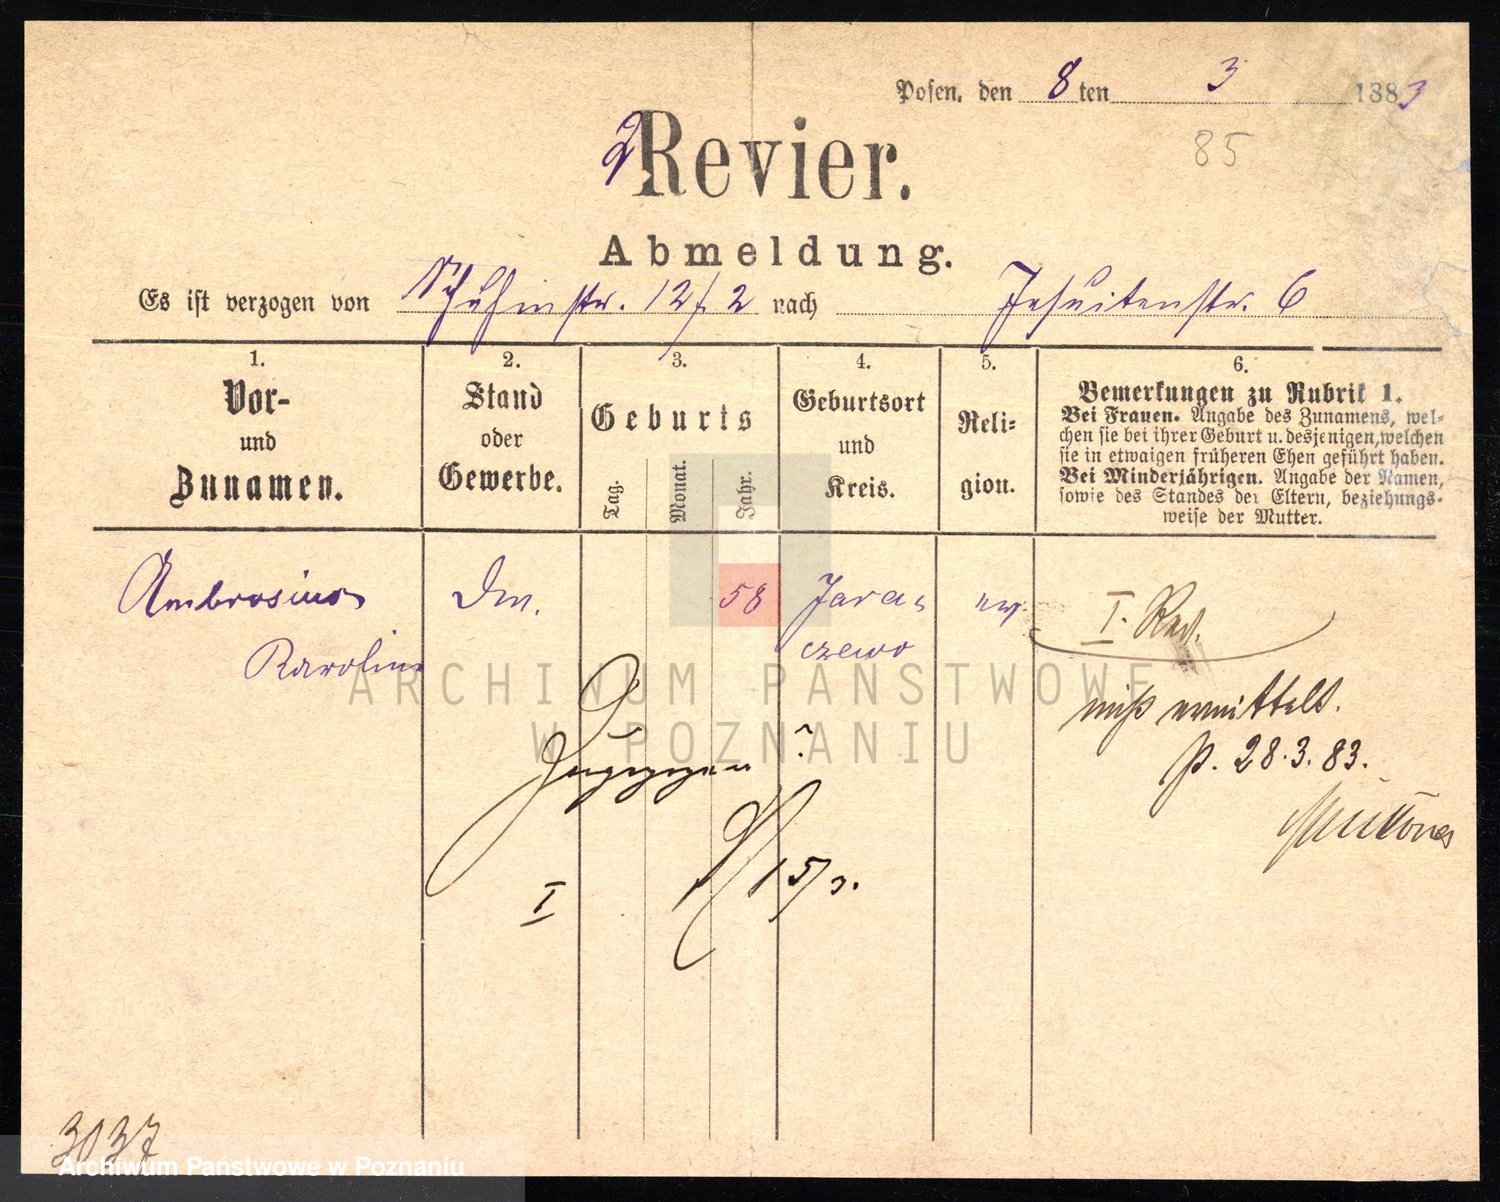 Posen, den 8ten 3 1883
85
2 Revier.
Abmeldung.
Es ist verzogen von Schuhmstr. 12/2 nach Jesuitenstr. 6
1.
Vor-
und
Zunamen.
2.
Stand
oder
Gewerbe.
3.
Geburts
Tag.
Monat.
Jahr.
4.
Geburtsort
und
Kreis.
5.
Reli-
gion.
6.
Bemerkungen zu Rubrik 1.
Bei Frauen. Angabe des Zunamens, wel-
chen sie bei ihrer Geburt u. desjenigen, welchen
sie in etwaigen früheren Ehen geführt haben.
Bei Minderjährigen. Angabe der Namen,
sowie des Standes der Eltern, beziehungs-
weise der Mutter.
Ambrosius
Karoline
58
Jara-
czewo
I. Rev.
ermittelt.
P. 28.3.83.
Zugezogen?
I
15/3.
ARCHIWUM PAŃSTWOWE
W POZNANIU
3037
Archiwum Państwowe w Poznaniu